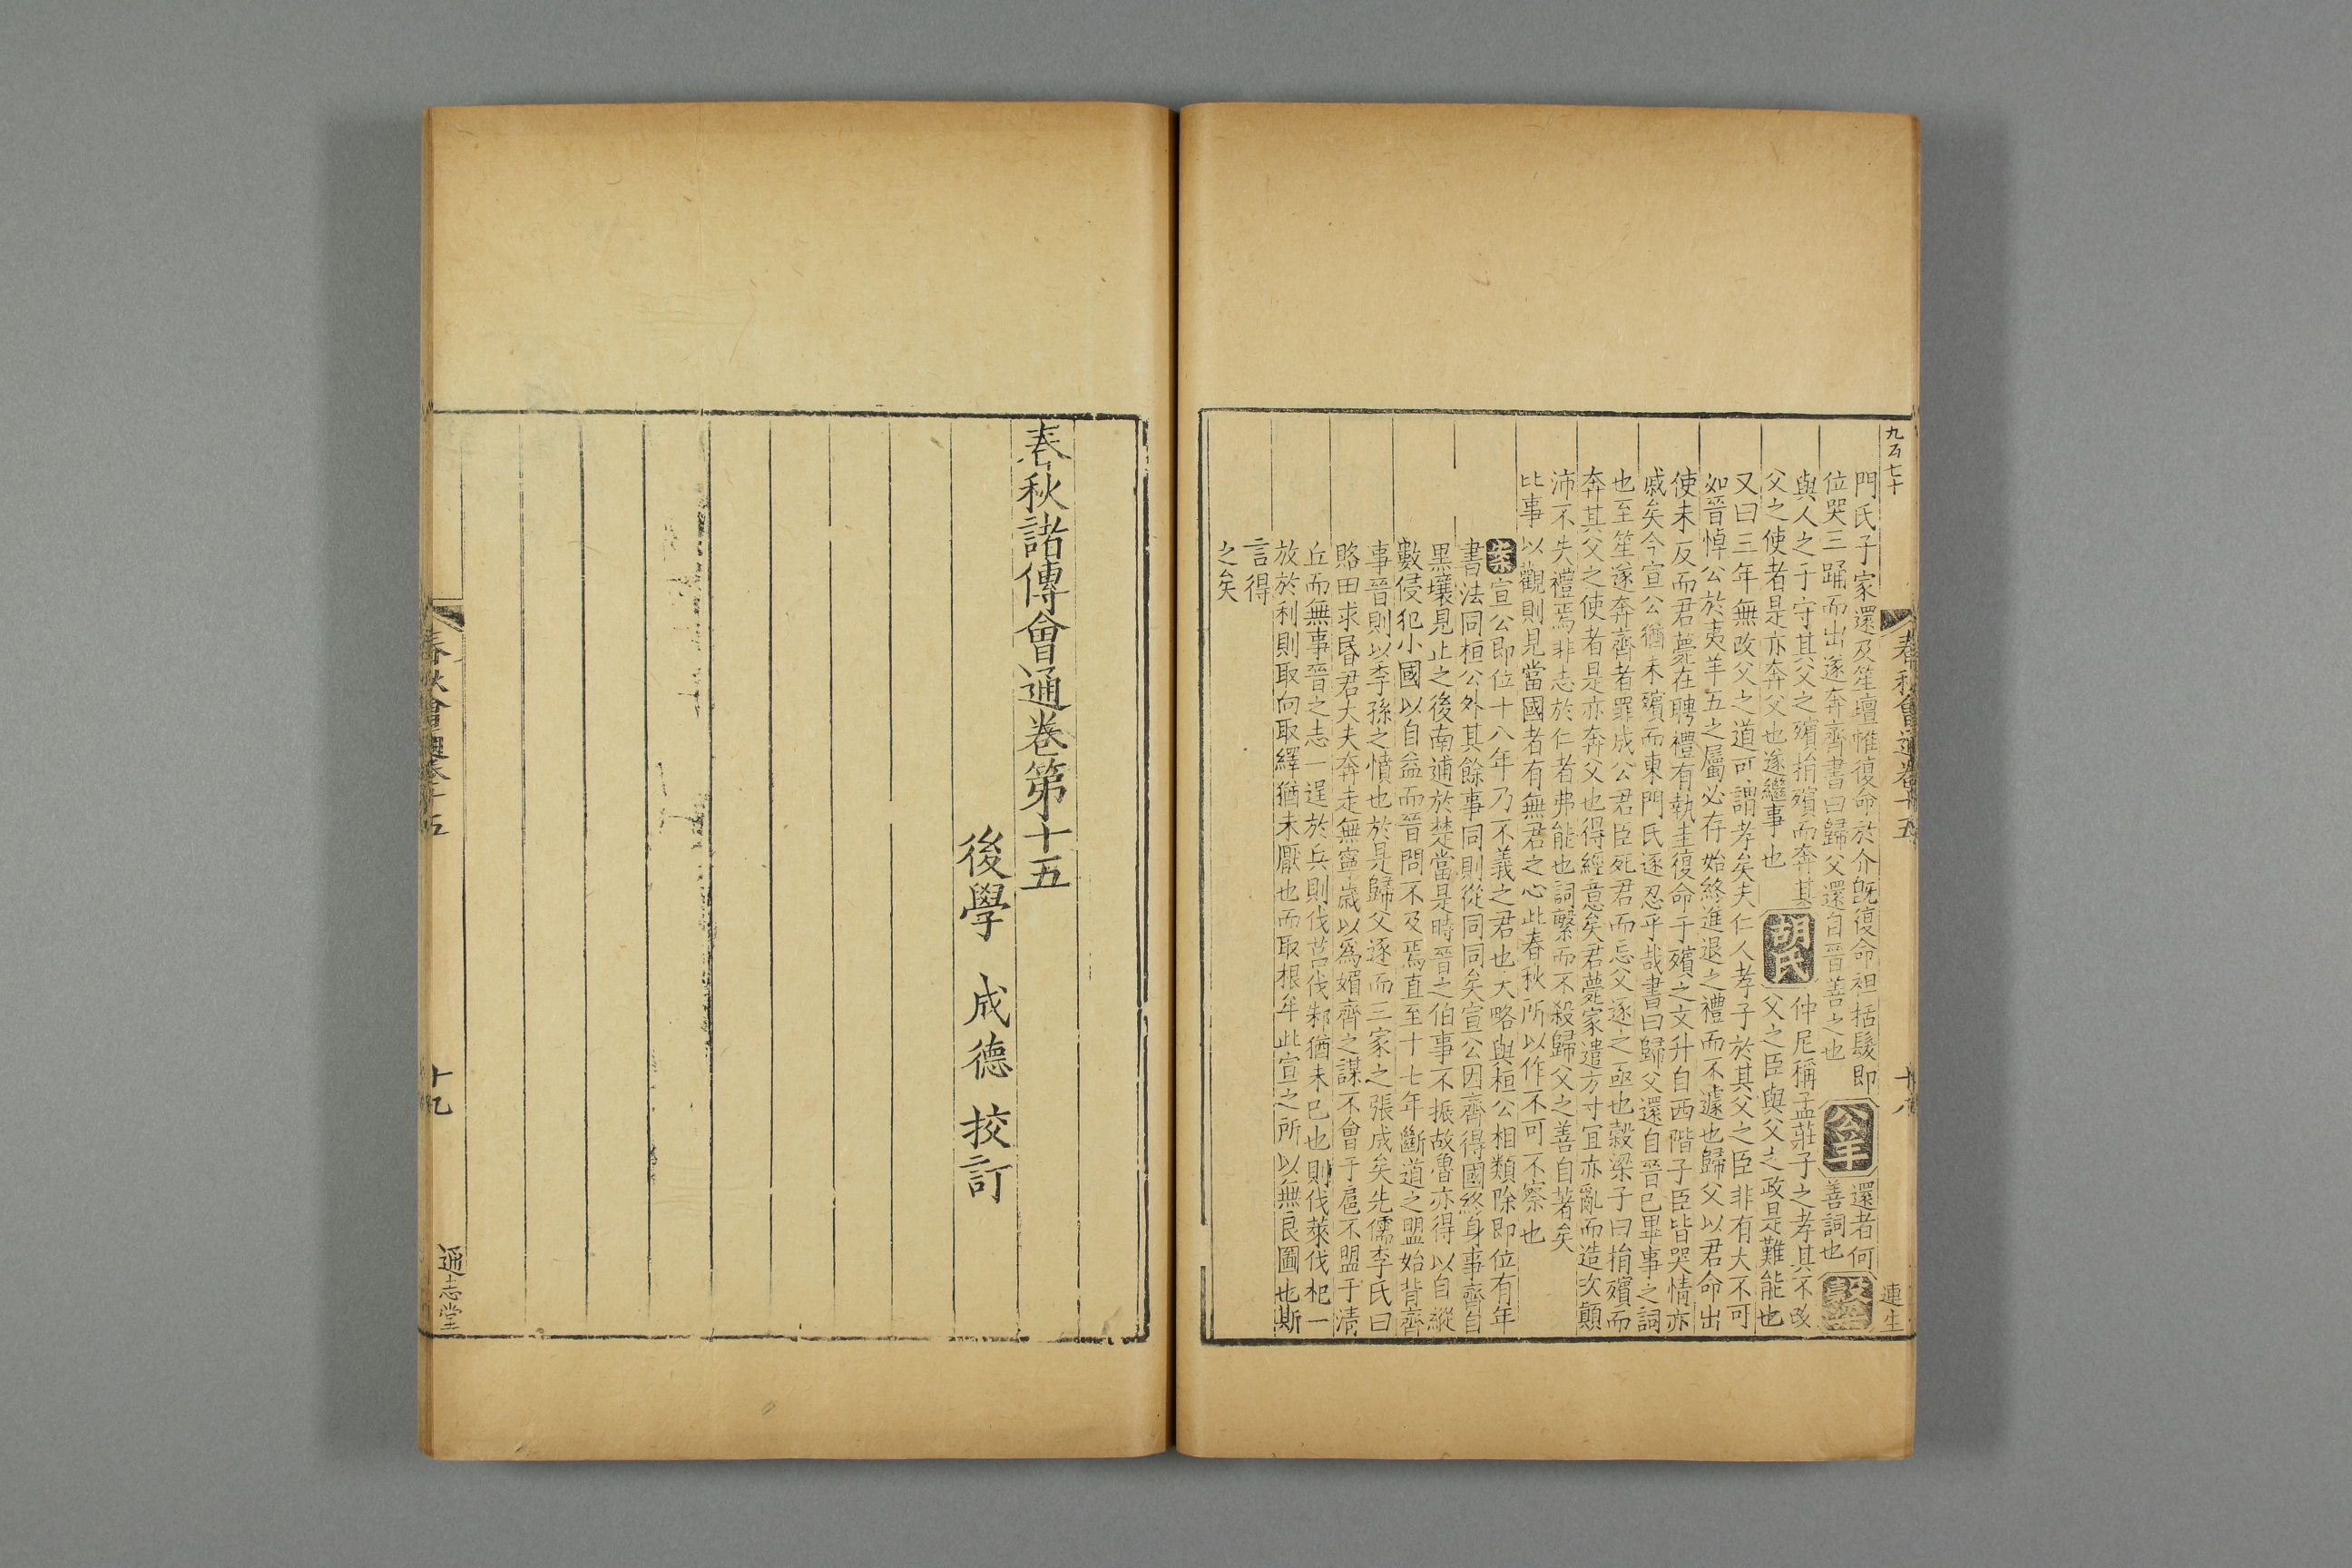 九百七十
春秋會通卷十五
十八
連生
門氏子家還及笙壇帷復命於介旣復命袒括髮即
位哭三踊而出遂奔齊書曰歸父還自晉善之也
公羊
還者何
善詞也
穀梁
與人之子守其父之殯捐殯而奔其
父之使者是亦奔父也遂繼事也
胡氏
仲尼稱孟莊子之孝其不改
父之臣與父之政是難能也
又曰三年無改父之道可謂孝矣夫仁人孝子於其父之臣非有大不可
如晉悼公於夷羊五之屬必存始終進退之禮而不遽也歸父以君命出
使未反而君薨在聘禮有執圭復命于殯之文升自西階子臣皆哭情亦
戚矣今宣公猶未殯而東門氏逐忍乎哉書曰歸父還自晉巳畢事之詞
也至笙遂奔齊者罪成公君臣死君而忘父逐之亟也穀梁子曰捐殯而
奔其父之使者是亦奔父也得經意矣君薨家遣方寸宜亦亂而造次顛
沛不失禮焉非志於仁者弗能也詞繫而不殺歸父之善自著矣
比事以觀則見當國者有無君之心此春秋所以作不可不察也
案宣公即位十八年乃不義之君也大略與桓公相類除即位有年
書法同桓公外其餘事同則從同同矣宣公因齊得國終身事齊自
黑壤見止之後南逋於楚當是時晉之伯事不振故魯亦得以自縱
數侵犯小國以自益而晉問不及焉直至十七年斷道之盟始背齊
事晉則以季孫之憤也於是歸父逐而三家之張成矣先儒李氏曰
賂田求昏君大夫奔走無寧歲以爲媚齊之謀不會于扈不盟于清
丘而無事晉之志一逞於兵則伐莒伐邾猶未巳也則伐萊伐杞一
放於利則取向取繹猶未厭也而取根牟此宣之所以無良圖也斯
言得
之矣
春秋諸傳會通卷第十五
後學 成德 挍訂
春秋會通卷十五
十九
通志堂